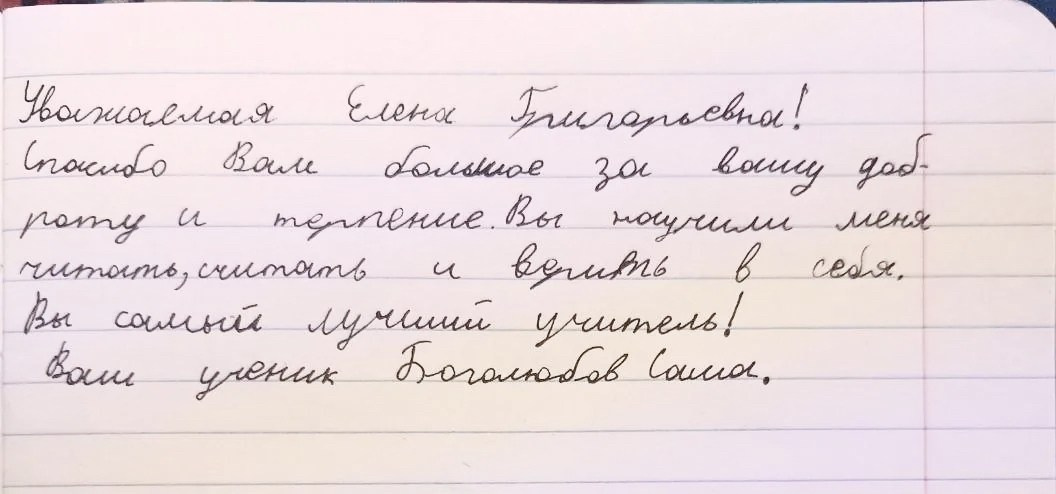 Уважаемая Елена Григарьевна!
Спасибо Вам большое за вашу доб-
роту и терпение. Вы научили меня
читать, считать и верить в себя.
Вы самый лучший учитель!
Ваш ученик Боголюбов Саша.